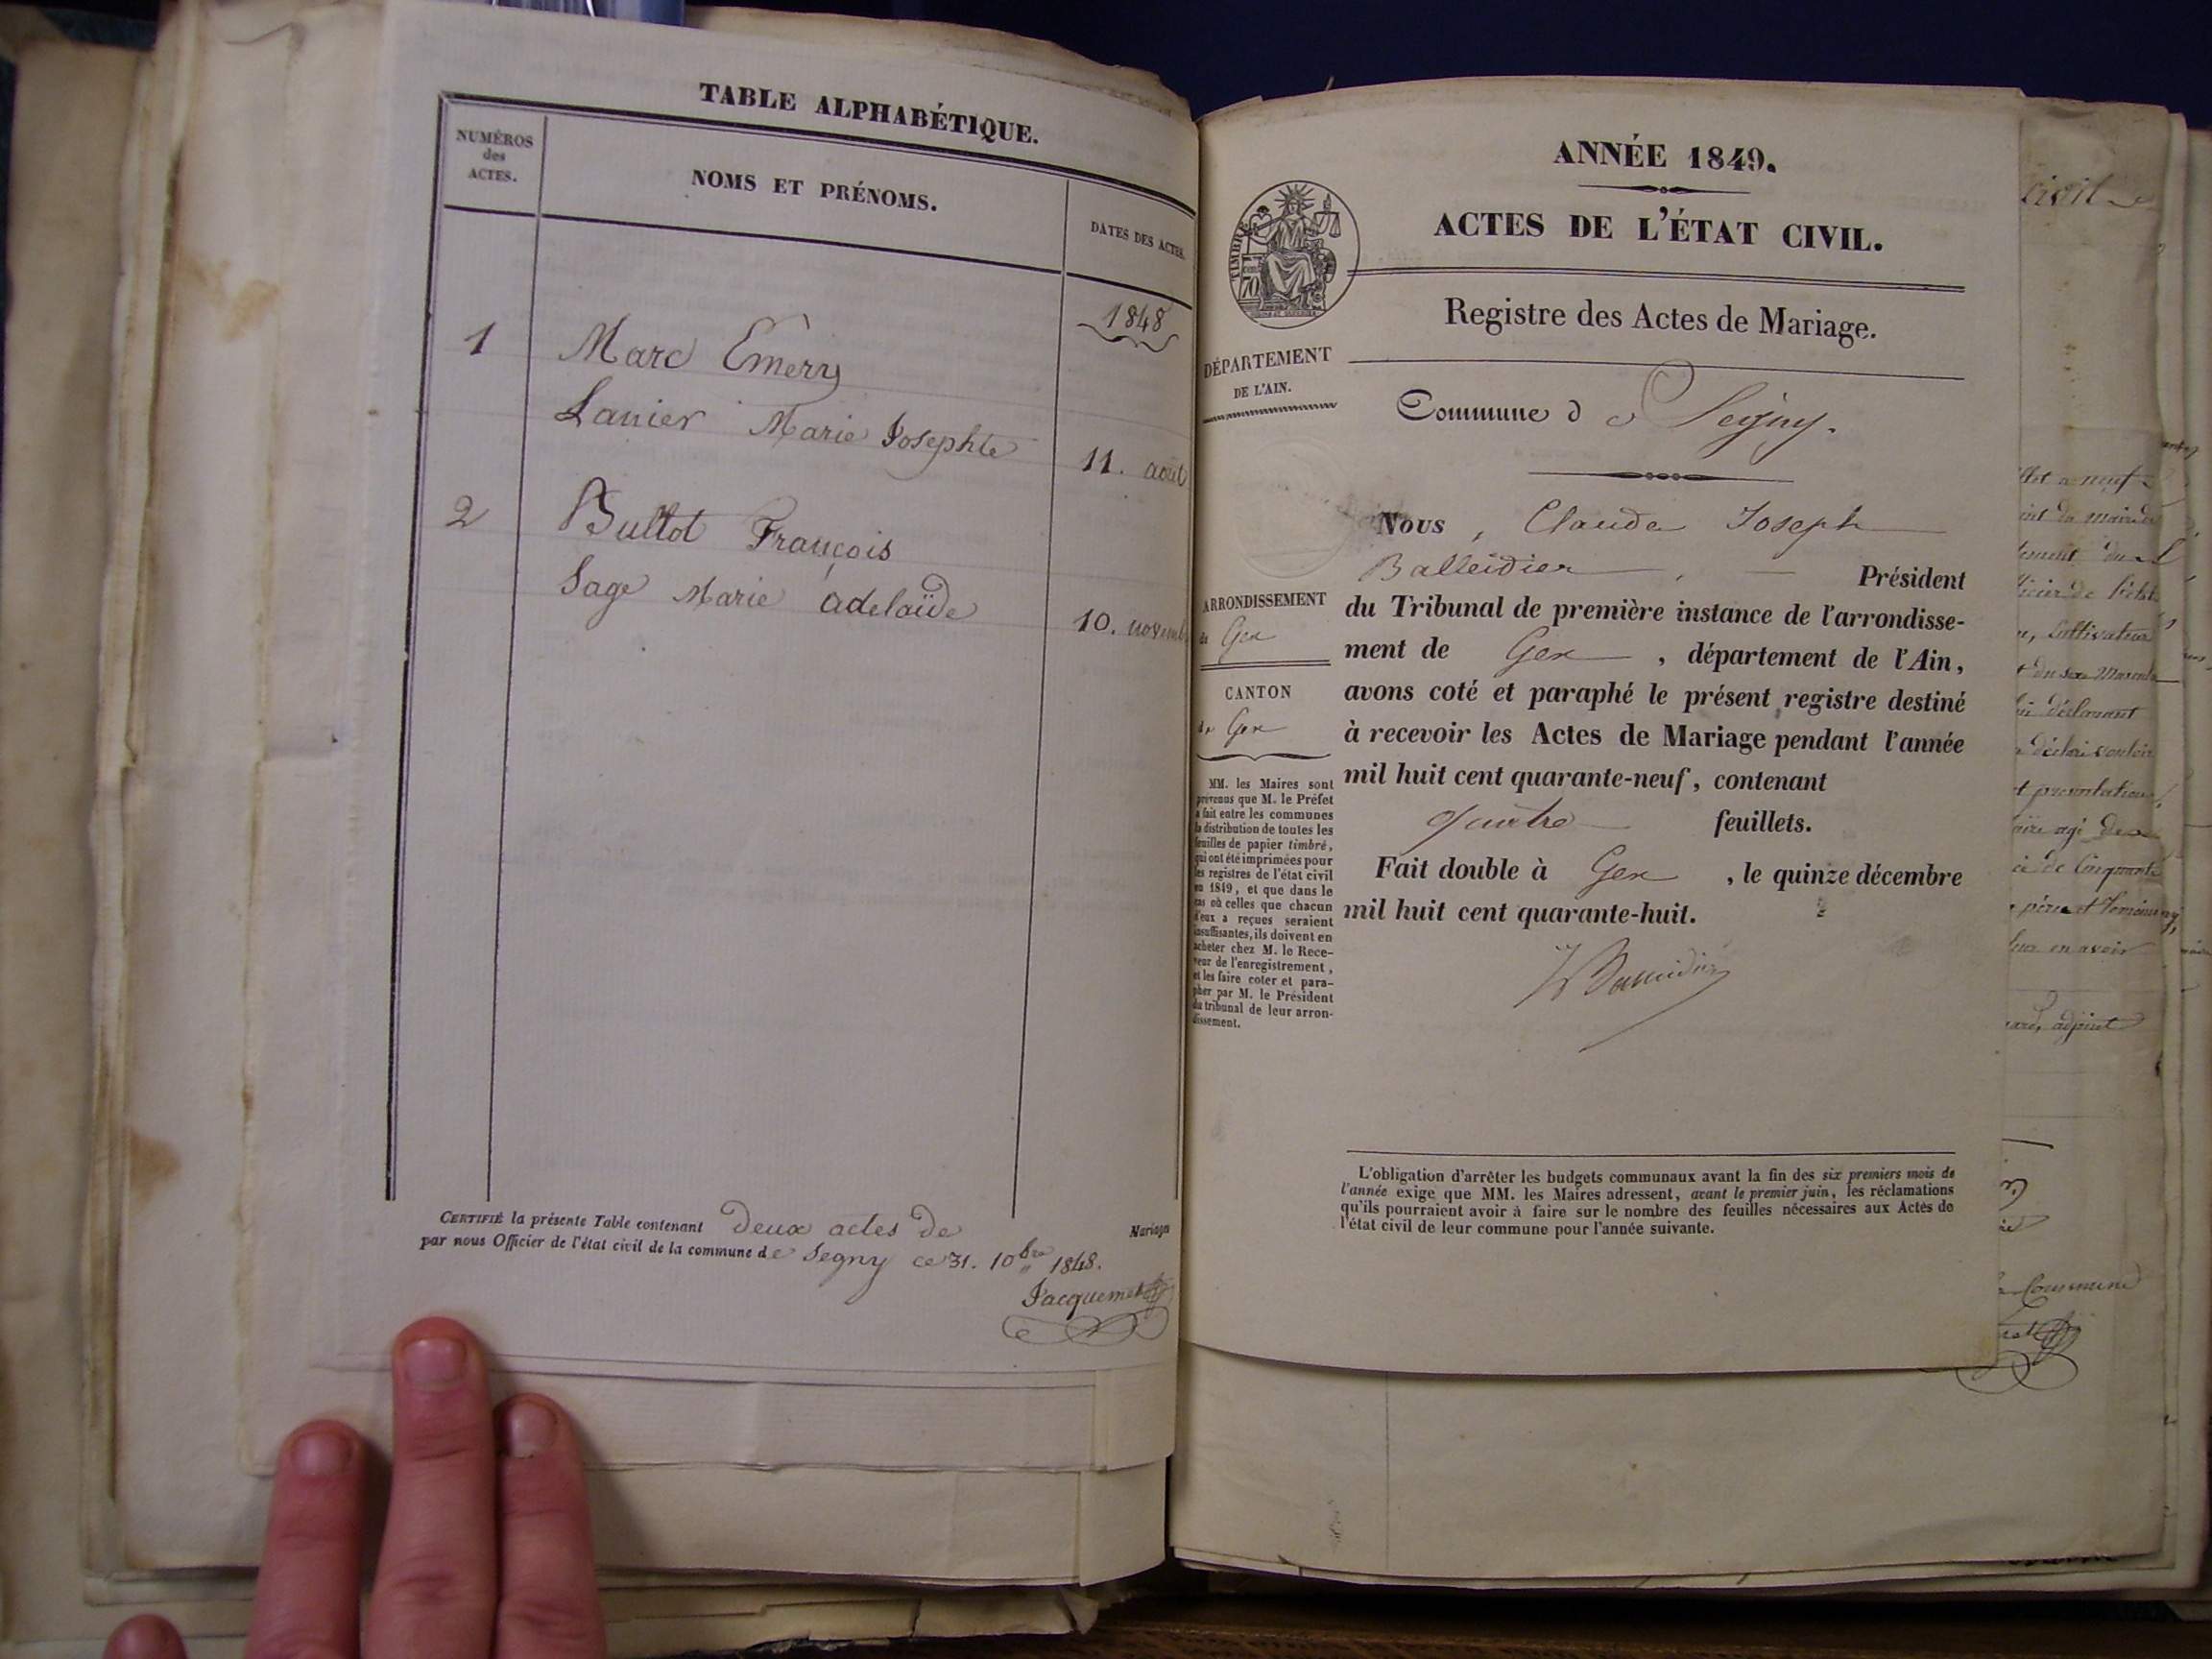 TABLE ALPHABÉTIQUE.
NUMÉROS
des
ACTES.
NOMS ET PRÉNOMS.
DATES DES ACTES.
1848
1 Marc Emèry
Lanier Marie Josephte 11. août
2 Bullot François
Sage Marie adelaïde 10. novemb
CERTIFIÉ la présente Table contenant deux actes de Mariages
par nous Officier de l'état civil de la commune de Segny ce 31. 10bre 1848.
Jacquemet
ANNÉE 1849.
ACTES DE L'ÉTAT CIVIL.
TIMBRE
70
Registre des Actes de Mariage.
DÉPARTEMENT
DE L'AIN.
Commune de Segny.
Nous, Claude Joseph
Balleidier, Président
du Tribunal de première instance de l'arrondisse-
ment de Gex, département de l'Ain,
avons coté et paraphé le présent registre destiné
à recevoir les Actes de Mariage pendant l'année
mil huit cent quarante-neuf, contenant
quatre feuillets.
Fait double à Gex, le quinze décembre
mil huit cent quarante-huit.
ARRONDISSEMENT
de Gex
CANTON
de Gex
MM. les Maires sont
prévenus que M. le Préfet
a fait entre les communes
la distribution de toutes les
feuilles de papier timbré,
qui ont été imprimées pour
les registres de l'état civil
en 1849, et que dans le
cas où celles que chacun
d'eux a reçues seraient
insuffisantes, ils doivent en
acheter chez M. le Rece-
veur de l'enregistrement,
et les faire coter et para-
pher par M. le Président
du tribunal de leur arron-
dissement.
L'obligation d'arrêter les budgets communaux avant la fin des six premiers mois de
l'année exige que MM. les Maires adressent, avant le premier juin, les réclamations
qu'ils pourraient avoir à faire sur le nombre des feuilles nécessaires aux Actes de
l'état civil de leur commune pour l'année suivante.
civil
neuf
cultivateur
du sexe Mascul
déclarant
présentation
agé de
de Cinquante
père et témoins
en avoir
adjoint
Commune